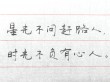 星光不问赶路人.
时光不负有心人.